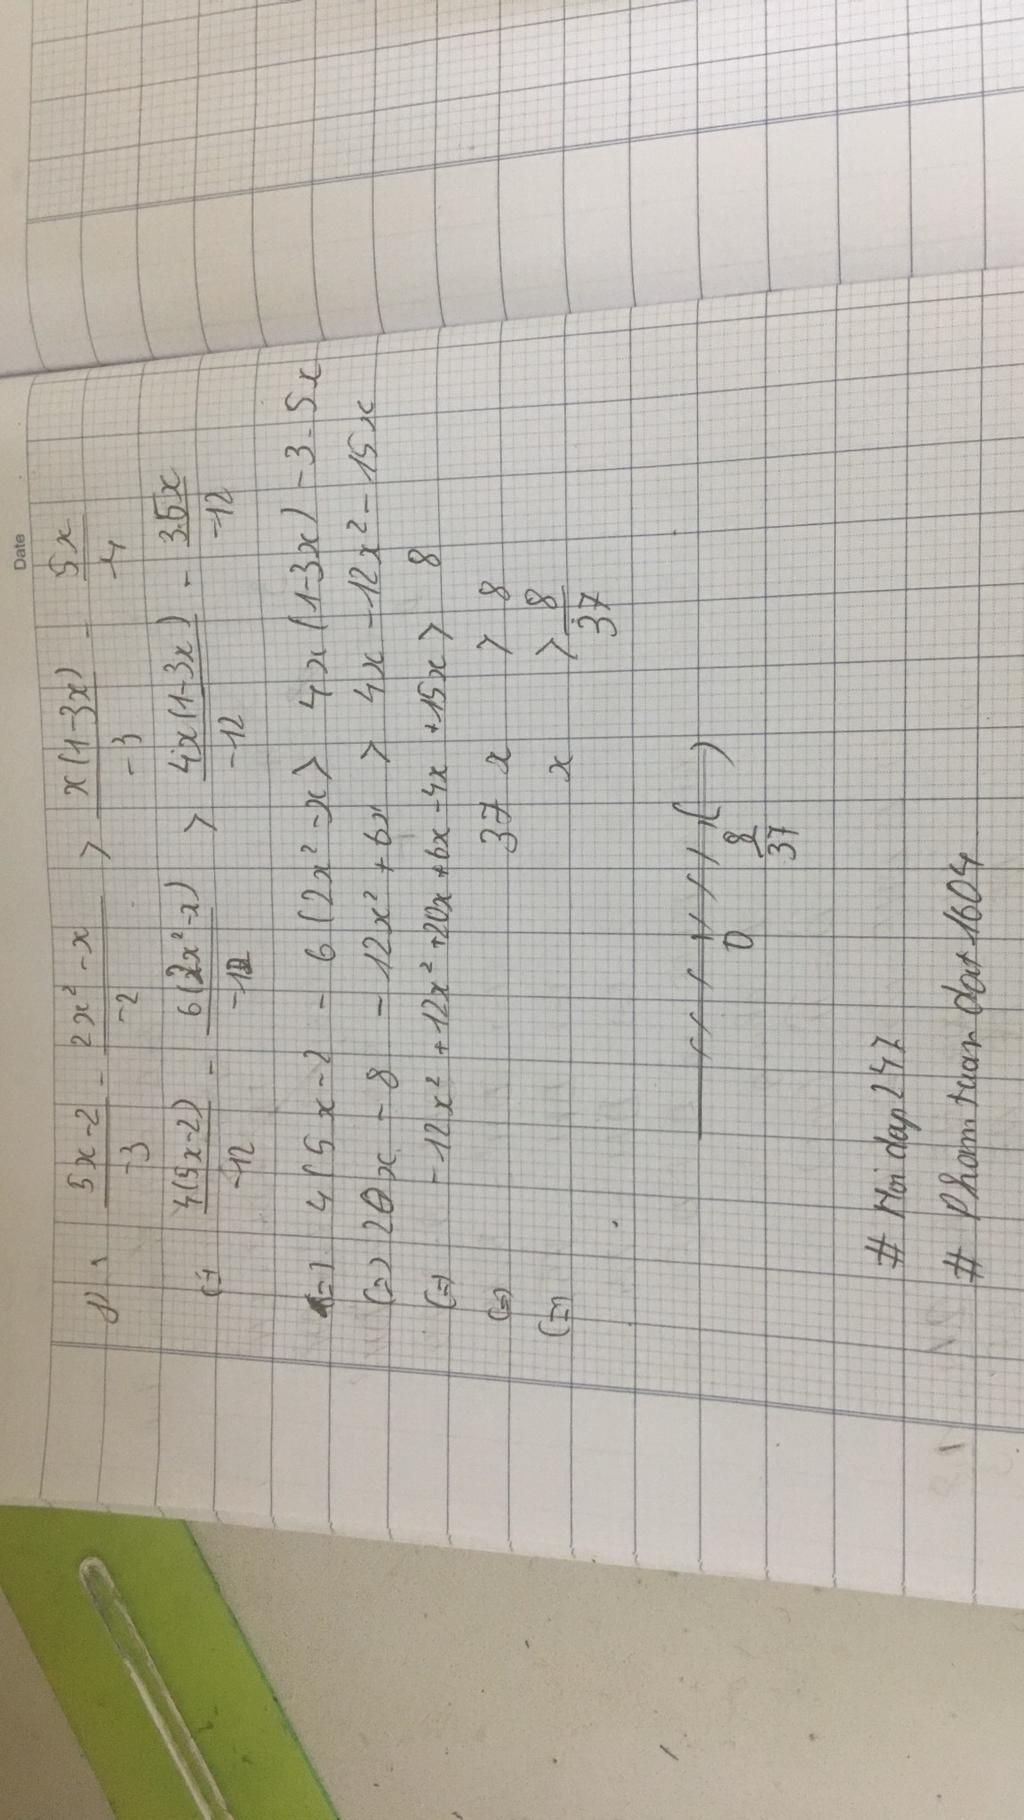 Date
8, 5x-2/-3 - 2x²-x/-2 > x(1-3x)/-3 - 5x/-4
(=) 4(5x-2)/-12 - 6(2x²-x)/-12 > 4x(1-3x)/-12 - 3.5x/-12
(=) 4(5x-2 - 6(2x²-x) > 4x(1-3x) - 3.5x
(=) 20x - 8 - 12x² + 6x > 4x - 12x² - 15x
(=) -12x² + 12x² + 20x + 6x - 4x + 15x > 8
(=) 37 x > 8
(=) x > 8/37
0 8/37
# Hoi dap 247
# Pham tuan dat 1604